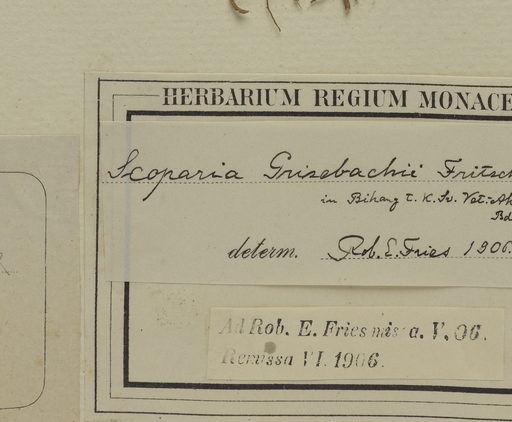 HERBARIUM REGIUM MONACE
Scoparia Grisebachii Fritsch
in Bihang t. K. Sv. Vet.-Ak
Bd
determ. Rob. E. Fries 1906.
Ad Rob. E. Fries missa. V. 06.
Remissa VI. 1906.